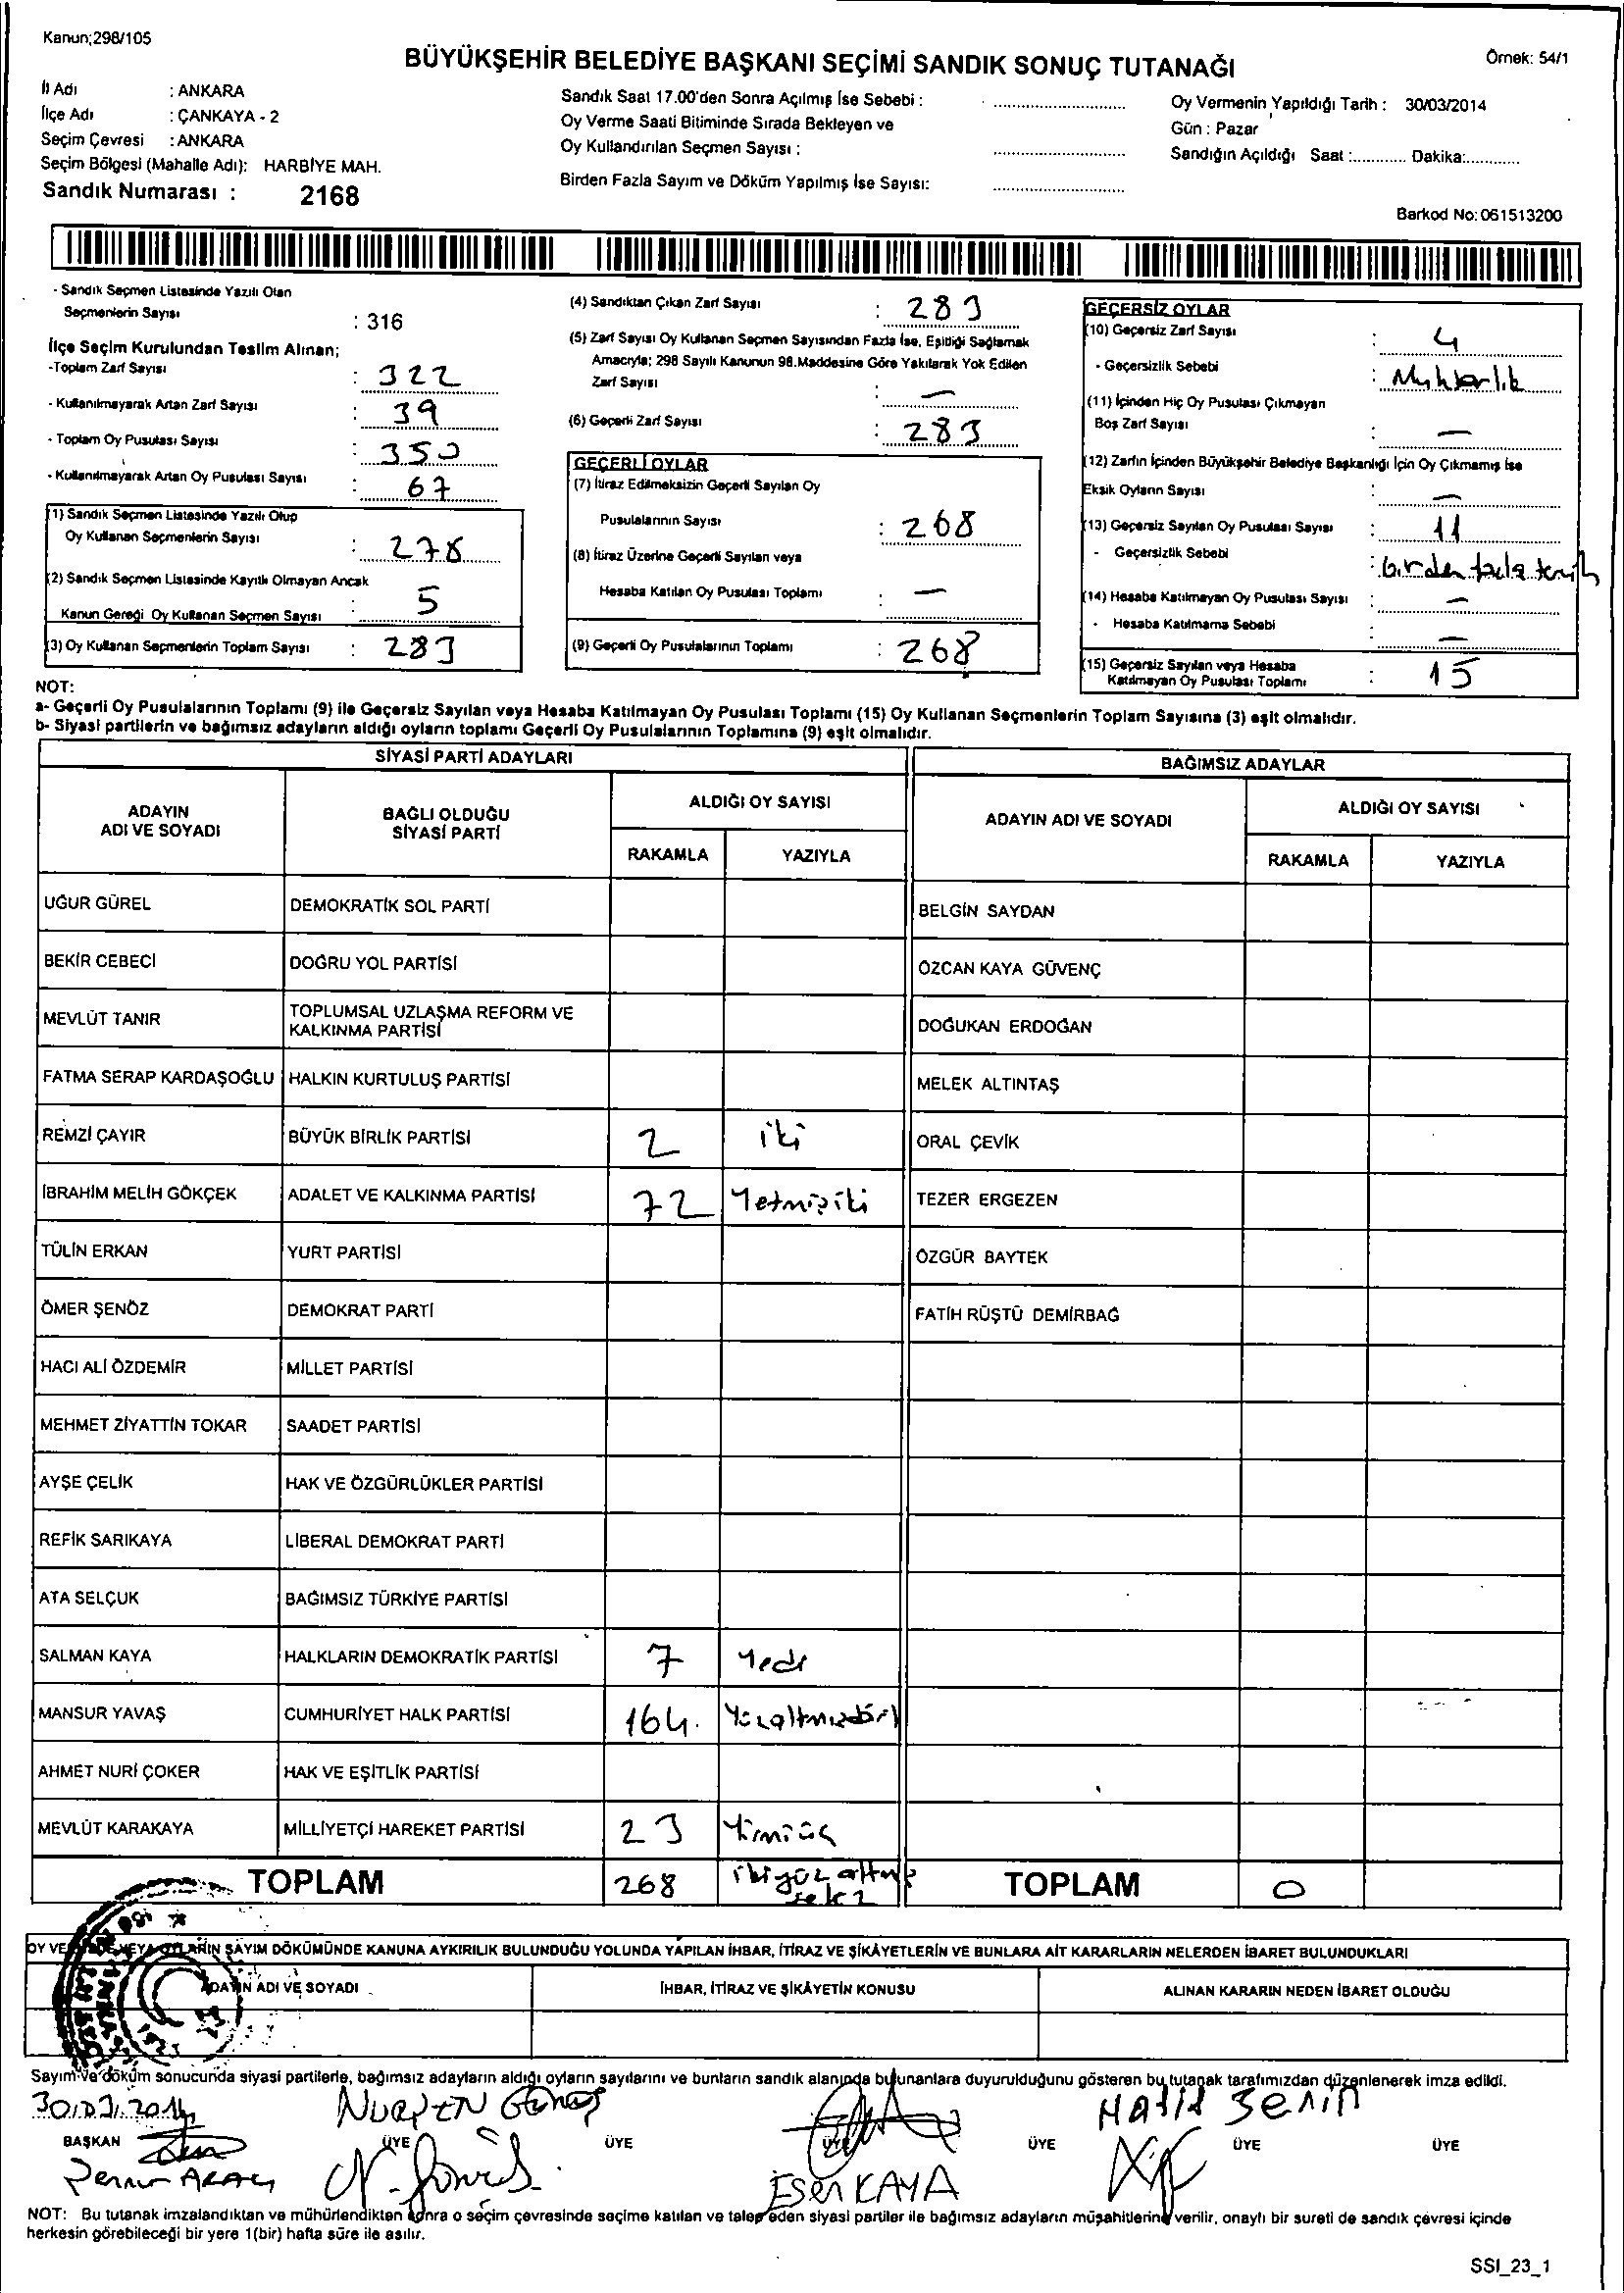 Kanun;298/105
BÜYÜKŞEHİR BELEDİYE BAŞKANI SEÇİMİ SANDIK SONUÇ TUTANAĞI
Örnek: 54/1
İl Adı : ANKARA
İlçe Adı : ÇANKAYA - 2
Seçim Çevresi : ANKARA
Seçim Bölgesi (Mahalle Adı): HARBİYE MAH.
Sandık Numarası : 2168
Sandık Saat 17.00'den Sonra Açılmış İse Sebebi :
Oy Verme Saati Bitiminde Sırada Bekleyen ve
Oy Kullandırılan Seçmen Sayısı :
Birden Fazla Sayım ve Döküm Yapılmış İse Sayısı:
Oy Vermenin Yapıldığı Tarih : 30/03/2014
Gün : Pazar
Sandığın Açıldığı Saat :............ Dakika:............
Barkod No: 061513200
- Sandık Seçmen Listesinde Yazılı Olan
Seçmenlerin Sayısı : 316
İlçe Seçim Kurulundan Teslim Alınan;
-Toplam Zarf Sayısı : 322
- Kullanılmayarak Artan Zarf Sayısı : 39
- Toplam Oy Pusulası Sayısı : 350
- Kullanılmayarak Artan Oy Pusulası Sayısı : 67
(1) Sandık Seçmen Listesinde Yazılı Olup
Oy Kullanan Seçmenlerin Sayısı : 278
(2) Sandık Seçmen Listesinde Kayıtlı Olmayan Ancak
Kanun Gereği Oy Kullanan Seçmen Sayısı : 5
(3) Oy Kullanan Seçmenlerin Toplam Sayısı : 283
(4) Sandıktan Çıkan Zarf Sayısı : 283
(5) Zarf Sayısı Oy Kullanan Seçmen Sayısından Fazla İse, Eşitliği Sağlamak
Amacıyla; 298 Sayılı Kanunun 98.Maddesine Göre Yakılarak Yok Edilen
Zarf Sayısı : —
(6) Geçerli Zarf Sayısı : 283
GEÇERLİ OYLAR
(7) İtiraz Edilmeksizin Geçerli Sayılan Oy
Pusulalarının Sayısı : 268
(8) İtiraz Üzerine Geçerli Sayılan veya
Hesaba Katılan Oy Pusulası Toplamı : —
(9) Geçerli Oy Pusulalarının Toplamı : 268
GEÇERSİZ OYLAR
(10) Geçersiz Zarf Sayısı : 4
- Geçersizlik Sebebi : Muhtarlık
(11) İçinden Hiç Oy Pusulası Çıkmayan
Boş Zarf Sayısı : —
(12) Zarfın İçinden Büyükşehir Belediye Başkanlığı İçin Oy Çıkmamış İse
Eksik Oyların Sayısı : —
(13) Geçersiz Sayılan Oy Pusulası Sayısı : 11
- Geçersizlik Sebebi : birden fazla tercih
(14) Hesaba Katılmayan Oy Pusulası Sayısı : —
- Hesaba Katılmama Sebebi : —
(15) Geçersiz Sayılan veya Hesaba
Katılmayan Oy Pusulası Toplamı : 15
NOT:
a- Geçerli Oy Pusulalarının Toplamı (9) ile Geçersiz Sayılan veya Hesaba Katılmayan Oy Pusulası Toplamı (15) Oy Kullanan Seçmenlerin Toplam Sayısına (3) eşit olmalıdır.
b- Siyasi partilerin ve bağımsız adayların aldığı oyların toplamı Geçerli Oy Pusulalarının Toplamına (9) eşit olmalıdır.
SİYASİ PARTİ ADAYLARI BAĞIMSIZ ADAYLAR
ADAYIN ADI VE SOYADI BAĞLI OLDUĞU SİYASİ PARTİ ALDIĞI OY SAYISI ADAYIN ADI VE SOYADI ALDIĞI OY SAYISI
RAKAMLA YAZIYLA RAKAMLA YAZIYLA
UĞUR GÜREL DEMOKRATİK SOL PARTİ BELGİN SAYDAN
BEKİR CEBECİ DOĞRU YOL PARTİSİ ÖZCAN KAYA GÜVENÇ
MEVLÜT TANIR TOPLUMSAL UZLAŞMA REFORM VE KALKINMA PARTİSİ DOĞUKAN ERDOĞAN
FATMA SERAP KARDAŞOĞLU HALKIN KURTULUŞ PARTİSİ MELEK ALTINTAŞ
REMZİ ÇAYIR BÜYÜK BİRLİK PARTİSİ 2 iki ORAL ÇEVİK
İBRAHİM MELİH GÖKÇEK ADALET VE KALKINMA PARTİSİ 72 Yetmişiki TEZER ERGEZEN
TÜLİN ERKAN YURT PARTİSİ ÖZGÜR BAYTEK
ÖMER ŞENÖZ DEMOKRAT PARTİ FATİH RÜŞTÜ DEMİRBAĞ
HACI ALİ ÖZDEMİR MİLLET PARTİSİ
MEHMET ZİYATTİN TOKAR SAADET PARTİSİ
AYŞE ÇELİK HAK VE ÖZGÜRLÜKLER PARTİSİ
REFİK SARIKAYA LİBERAL DEMOKRAT PARTİ
ATA SELÇUK BAĞIMSIZ TÜRKİYE PARTİSİ
SALMAN KAYA HALKLARIN DEMOKRATİK PARTİSİ 7 Yedi
MANSUR YAVAŞ CUMHURİYET HALK PARTİSİ 164. Yüzaltmışdört
AHMET NURİ ÇOKER HAK VE EŞİTLİK PARTİSİ
MEVLÜT KARAKAYA MİLLİYETÇİ HAREKET PARTİSİ 23 Yirmiüç
TOPLAM 268 ikiyüz altmış sekiz TOPLAM 0
OY VERMEDE VEYA OYLARIN SAYIM DÖKÜMÜNDE KANUNA AYKIRILIK BULUNDUĞU YOLUNDA YAPILAN İHBAR, İTİRAZ VE ŞİKÂYETLERİN VE BUNLARA AİT KARARLARIN NELERDEN İBARET BULUNDUKLARI
ADAYIN ADI VE SOYADI İHBAR, İTİRAZ VE ŞİKÂYETİN KONUSU ALINAN KARARIN NEDEN İBARET OLDUĞU
Sayım ve döküm sonucunda siyasi partilerle, bağımsız adayların aldığı oyların sayılarını ve bunların sandık alanında bulunanlara duyurulduğunu gösteren bu tutanak tarafımızdan düzenlenerek imza edildi.
30.03.2014 NURŞEN
BAŞKAN ÜYE ÜYE ÜYE ÜYE ÜYE ÜYE
ESER KAYA
NOT: Bu tutanak imzalandıktan ve mühürlendikten sonra o seçim çevresinde seçime katılan ve talep eden siyasi partiler ile bağımsız adayların müşahitlerine verilir, onaylı bir sureti de sandık çevresi içinde
herkesin görebileceği bir yere 1(bir) hafta süre ile asılır.
SSI_23_1